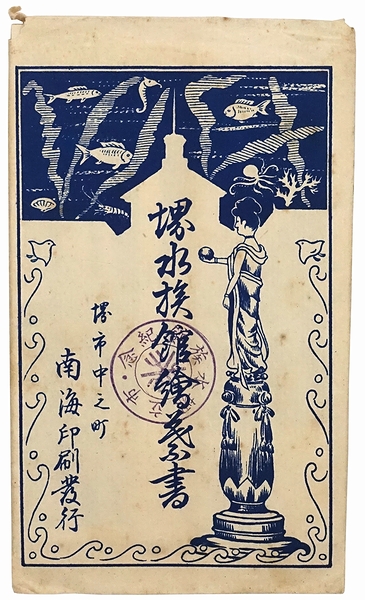 堺水族館繪葉書
堺市中之町
南海印刷發行